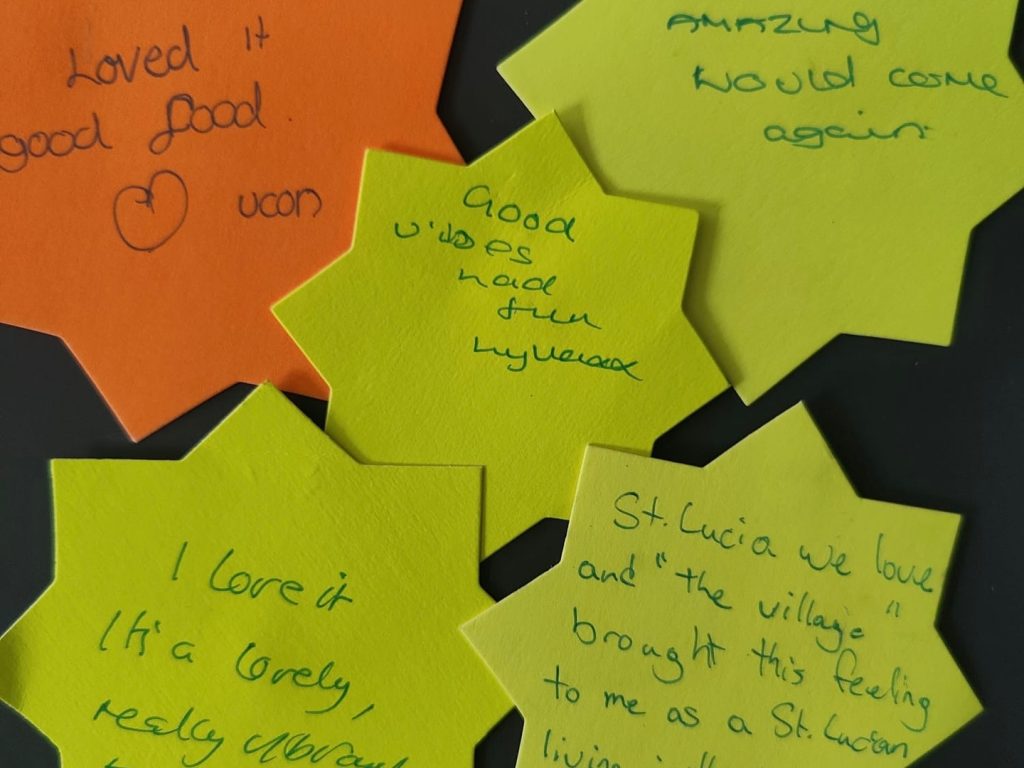 Loved it
good food.
ucon
AMAZING
would come
again
Good
vibes
had
fun
I Love it
It's a lovely,
really vibrant
St. Lucia we love
and "the village"
brought this feeling
to me as a St. Lucian
living